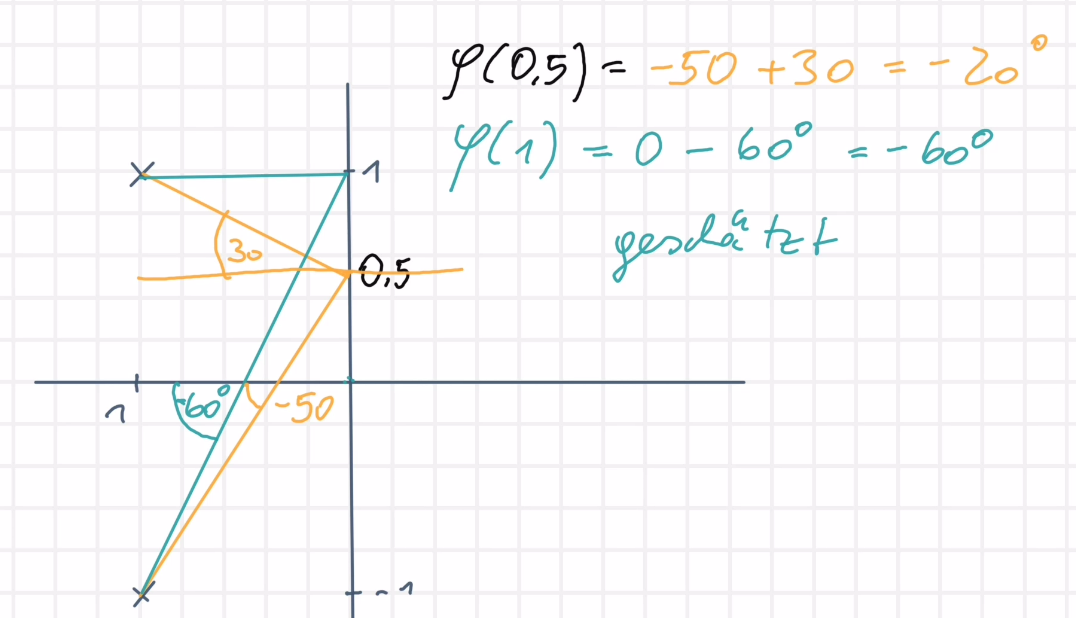 φ(0,5) = -50 +30 = -20°
φ(1) = 0 - 60° = -60°
1
geschätzt
30
0,5
1
-60°
-50
-1